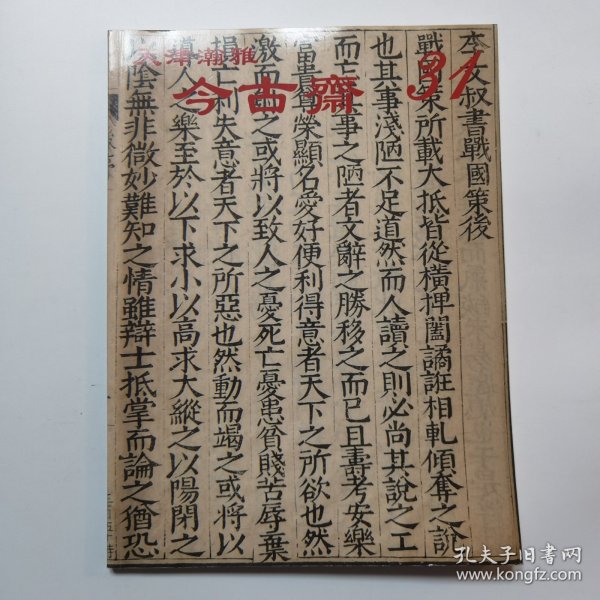 天津瀚雅
今古齋
31
李文叔書戰國策後
戰國策所載大抵皆從橫捭闔譎誑相軋傾奪之說
也其事淺陋不足道然而人讀之則必尚其說之工
而忘其事之陋者文辭之勝移之而已且壽考安樂
富貴尊榮顯名愛好便利得意者天下之所欲也然
激而射之或將以致人之憂死亡憂患貧賤苦辱棄
損亡利失意者天下之所惡也然動而竭之或將以
導人之樂至於以下求小以高求大縱之以陽閉之
以陰無非微妙難知之情雖辯士抵掌而論之猶恐
孔夫子旧书网
www.kongfz.com